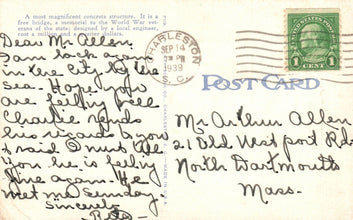 A most significant concrete structure. It is a
free bridge, a memorial to the World War vet-
erans of the state; designed by a local engineer,
cost a million and a quarter dollars.
Dear Mr. Allen,
I am back again
in the City by the
sea. Hope you
are feeling well
Charlie sends
his regards to you
& said I must tell
you he is feeling
fine again. He
met me Sunday
Sincerely
CHARLESTON
SEP 14
PM
1939
S.C.
1 CENT 1
POST CARD
Mr Arthur Allen
21 Old Westport Rd.
North Dartmouth
Mass.